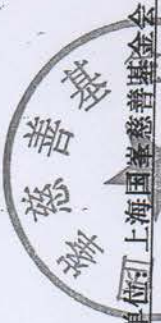 峯慈善基
单位：上海国峯慈善基金会